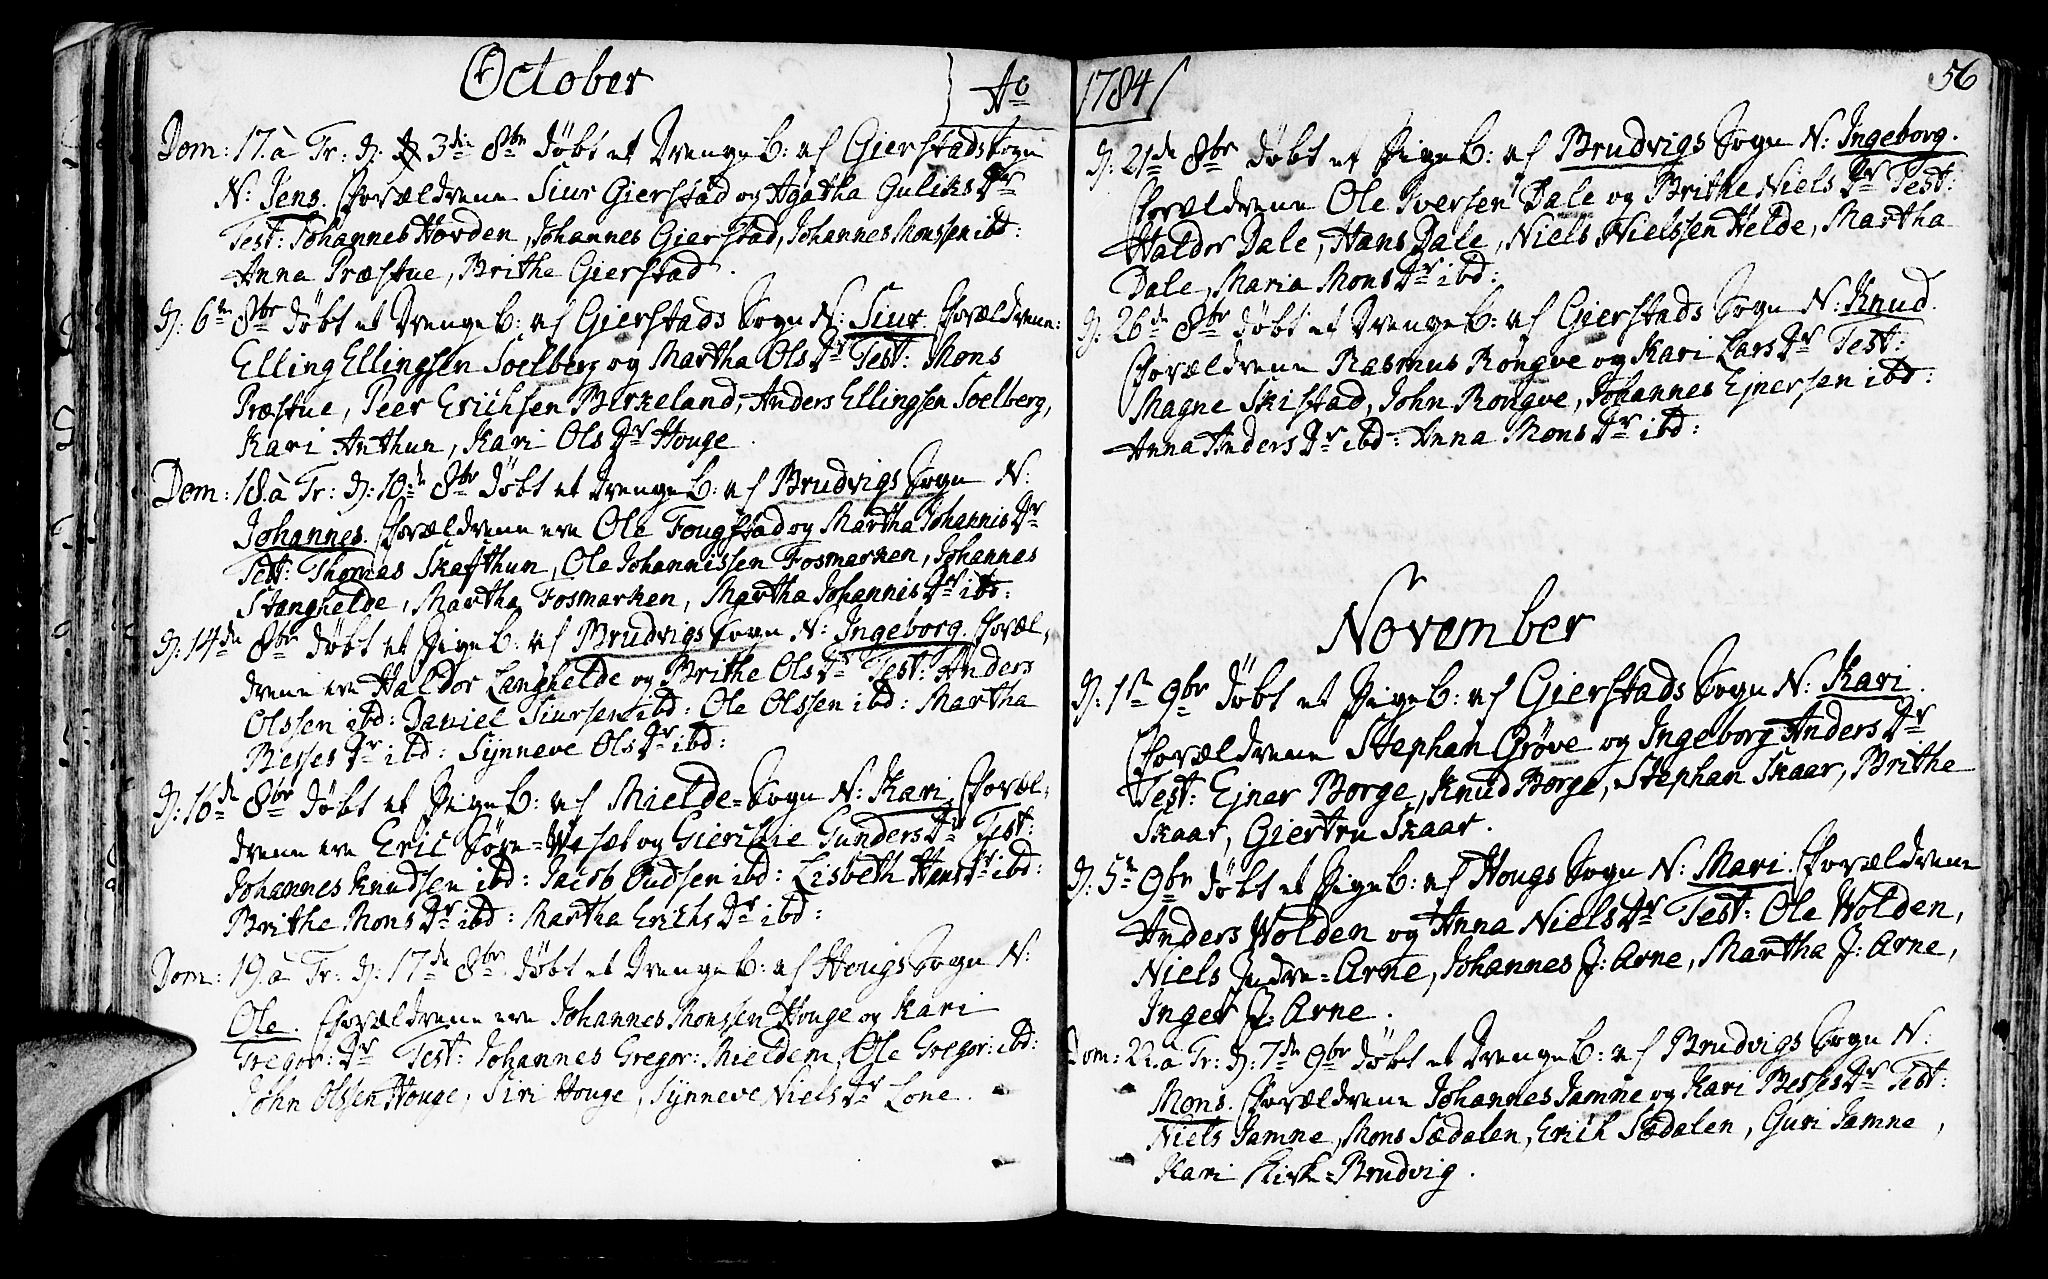 October
Ao
Dom: 17. à Tr: D: 3die 8br døbt et Drengeb: af Gierstads Sogn
N: Jens. Forældrene Siur Gierstad og Agatha Guliks Dr
Test: Johannes Hovden, Johannes Gierstad, Johannes Monssen ibd:
Anna Præstue, Brithe Gierstad.
D: 6te 8br døbt et Drengeb: af Gierstads Sogn N: Siur. Forældrene:
Elling Ellingsen Soelberg og Martha Ols Dr Test: Mons
Præstue, Peer Erichsen Birkeland, Anders Ellingsen Soelberg,
Kari Anthun, Kari Ols Dr Houge.
Dom: 18. à Tr: D: 10de 8br døbt et Drengeb: af Brudvigs Sogn N:
Johannes. Forældrene ere Ole Fougstad og Martha Johannis Dr
Test: Thomas Skafthun, Ole Johannissen Fosmarken, Johannes
Stanghelde, Martha Fosmarken, Martha Johannis Dr ibd:
D: 14de 8br døbt et Pigeb: af Brudvigs Sogn N: Ingeborg. Foræl-
drene ere Haldor Langhelde og Brithe Ols Dr Test: Anders
Olssen ibd: Daniel Siursen ibd: Ole Olssen ibd: Martha
Besses Dr ibd: Synneve Ols Dr ibd:
D: 16de 8br døbt et Pigeb: af Mielde=Sogn N: Kari. Foræl-
drene ere Eric Søre=Wesæt og Giertrue Gunders Dr Test:
Johannes Knudsen ibd: Jacob Oudsen ibd: Lisbeth Hans Dr ibd:
Brithe Mons Dr ibd: Martha Erichs Dr ibd:
Dom: 19. à Tr: D: 17de 8br døbt et Drengeb: af Hougs Sogn N:
Ole. Forældrene ere Johannes Monssen Houge og Kari
Gregor: Dr Test: Johannes Gregor: Mieldem, Ole Gregor: ibd:
John Olssen Houge, Siri Houge, Synneve Niels Dr Lone.
1784
56
D: 21de 8br døbt et Pigeb: af Brudvigs Sogn N: Ingeborg.
Forældrene Ole Iversen Dale og Brithe Niels Dr Test:
Haldor Dale, Hans Dale, Niels Nielssen Helde, Martha
Dale, Maria Mons Dr ibd:
D: 26de 8br døbt et Drengeb: af Gierstads Sogn N: Knud.
Forældrene Rasmus Rongve og Kari Lars Dr Test:
Magne Skistad, John Rongve, Johannes Ejnersen ibd:
Anna Anders Dr ibd: Anna Mons Dr ibd:
November
D: 1ste 9br døbt et Pigeb: af Gierstads Sogn N: Kari.
Forældrene Stephan Grøve og Ingeborg Anders Dr
Test: Ejner Borge, Knud Borge, Stephan Skaar, Brithe
Skaar, Giertru Skaar.
D: 5te 9br døbt et Pigeb: af Hougs Sogn N: Mari. Forældrene
Anders Wolden og Anna Niels Dr Test: Ole Wolden,
Niels Indre=Arne, Johannes J: Arne, Martha J: Arne,
Inger J: Arne.
Dom: 22. à Tr: D: 7de 9br døbt et Drengeb: af Brudvigs Sogn N:
Mons. Forældrene Johannes Jamne og Kari Besses Dr Test:
Niels Jamne, Mons Sædalen, Erich Sædalen, Guri Jamne,
Kari Kirke=Brudvig.